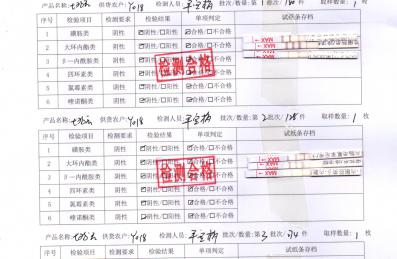 产品名称: 供货农户: Yo18 检测人员: 批次/数量:第1批次/ 件 取样数量:1枚
序号 检验项目 检测要求 检验结果 单项判定 试纸条存档
1 磺胺类 阴性 ☑阴性/□阳性 ☑合格/□不合格
2 大环内酯类 阴性 ☑阴性/□阳性 ☑合格/□不合格
3 β-一内酰胺类 阴性 ☑阴性/□阳性 ☑合格/□不合格
4 四环素类 阴性 ☑阴性/□阳性 ☑合格/□不合格
5 氯霉素类 阴性 ☑阴性/□阳性 ☑合格/□不合格
6 喹诺酮类 阴性 ☑阴性/□阳性 ☑合格/□不合格
检测合格
MAX
MAX
产品名称: 供货农户: Yo18 检测人员: 批次/数量:第2批次/128件 取样数量:1枚
序号 检验项目 检测要求 检验结果 单项判定 试纸条存档
1 磺胺类 阴性 ☑阴性/□阳性 ☑合格/□不合格
2 大环内酯类 阴性 ☑阴性/□阳性 ☑合格/□不合格
3 β-一内酰胺类 阴性 ☑阴性/□阳性 ☑合格/□不合格
4 四环素类 阴性 ☑阴性/□阳性 ☑合格/□不合格
5 氯霉素类 阴性 ☑阴性/□阳性 ☑合格/□不合格
6 喹诺酮类 阴性 ☑阴性/□阳性 ☑合格/□不合格
检测合格
MAX
MAX
产品名称: 供货农户: Yo18 检测人员: 批次/数量:第3批次/ 件 取样数量:1枚
序号 检验项目 检测要求 检验结果 单项判定 试纸条存档